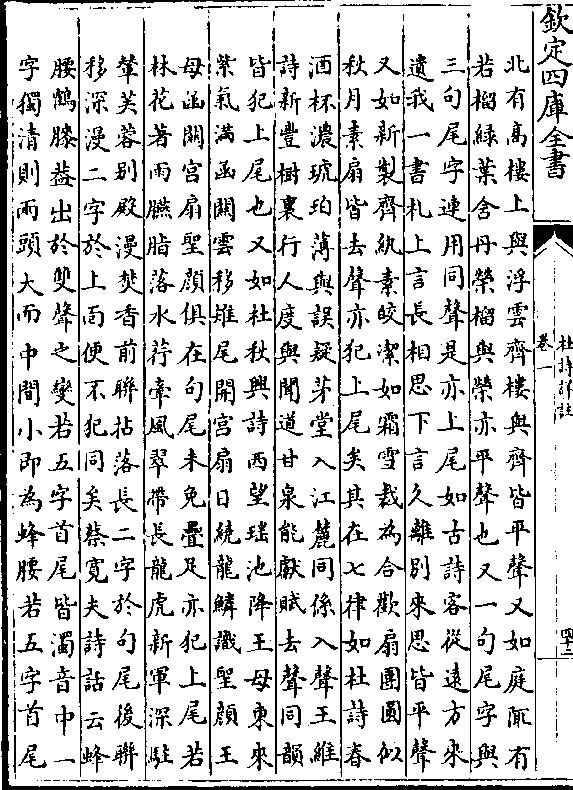 欽定四庫全書
杜詩詳註
卷一
北有高樓上與浮雲齊樓與齊皆平聲又如庭陬有
若榴緑葉含丹榮榴與榮亦平聲也又一句尾字與
三句尾字連用同聲是亦上尾如古詩客從遠方來
遺我一書札上言長相思下言久離別來思皆平聲
又如新製齊紈素皎潔如霜雪裁為合歡扇團圓似
秋月素扇皆去聲亦犯上尾矣其在七律如杜詩春
酒杯濃琥珀薄與誤疑茅堂入江麓同係入聲王維
詩新豐樹裏行人度與聞道甘泉能獻賦去聲同韻
皆犯上尾也又如杜秋興詩西望瑤池降王母東來
紫氣滿函關雲移雉尾開宮扇日繞龍鱗識聖顔王
母函關宮扇聖顔俱在句尾未免疊足亦犯上尾若
林花著雨臙脂落水荇牽風翠帶長龍虎新軍深駐
輦芙蓉别殿漫焚香前聯拈落長二字於句尾後聯
移深漫二字於上面便不犯同矣蔡寛夫詩話云蜂
腰鶴膝葢出於雙聲之變若五字首尾皆濁音中一
字獨清則兩頭大而中間小即為蜂腰若五字首尾